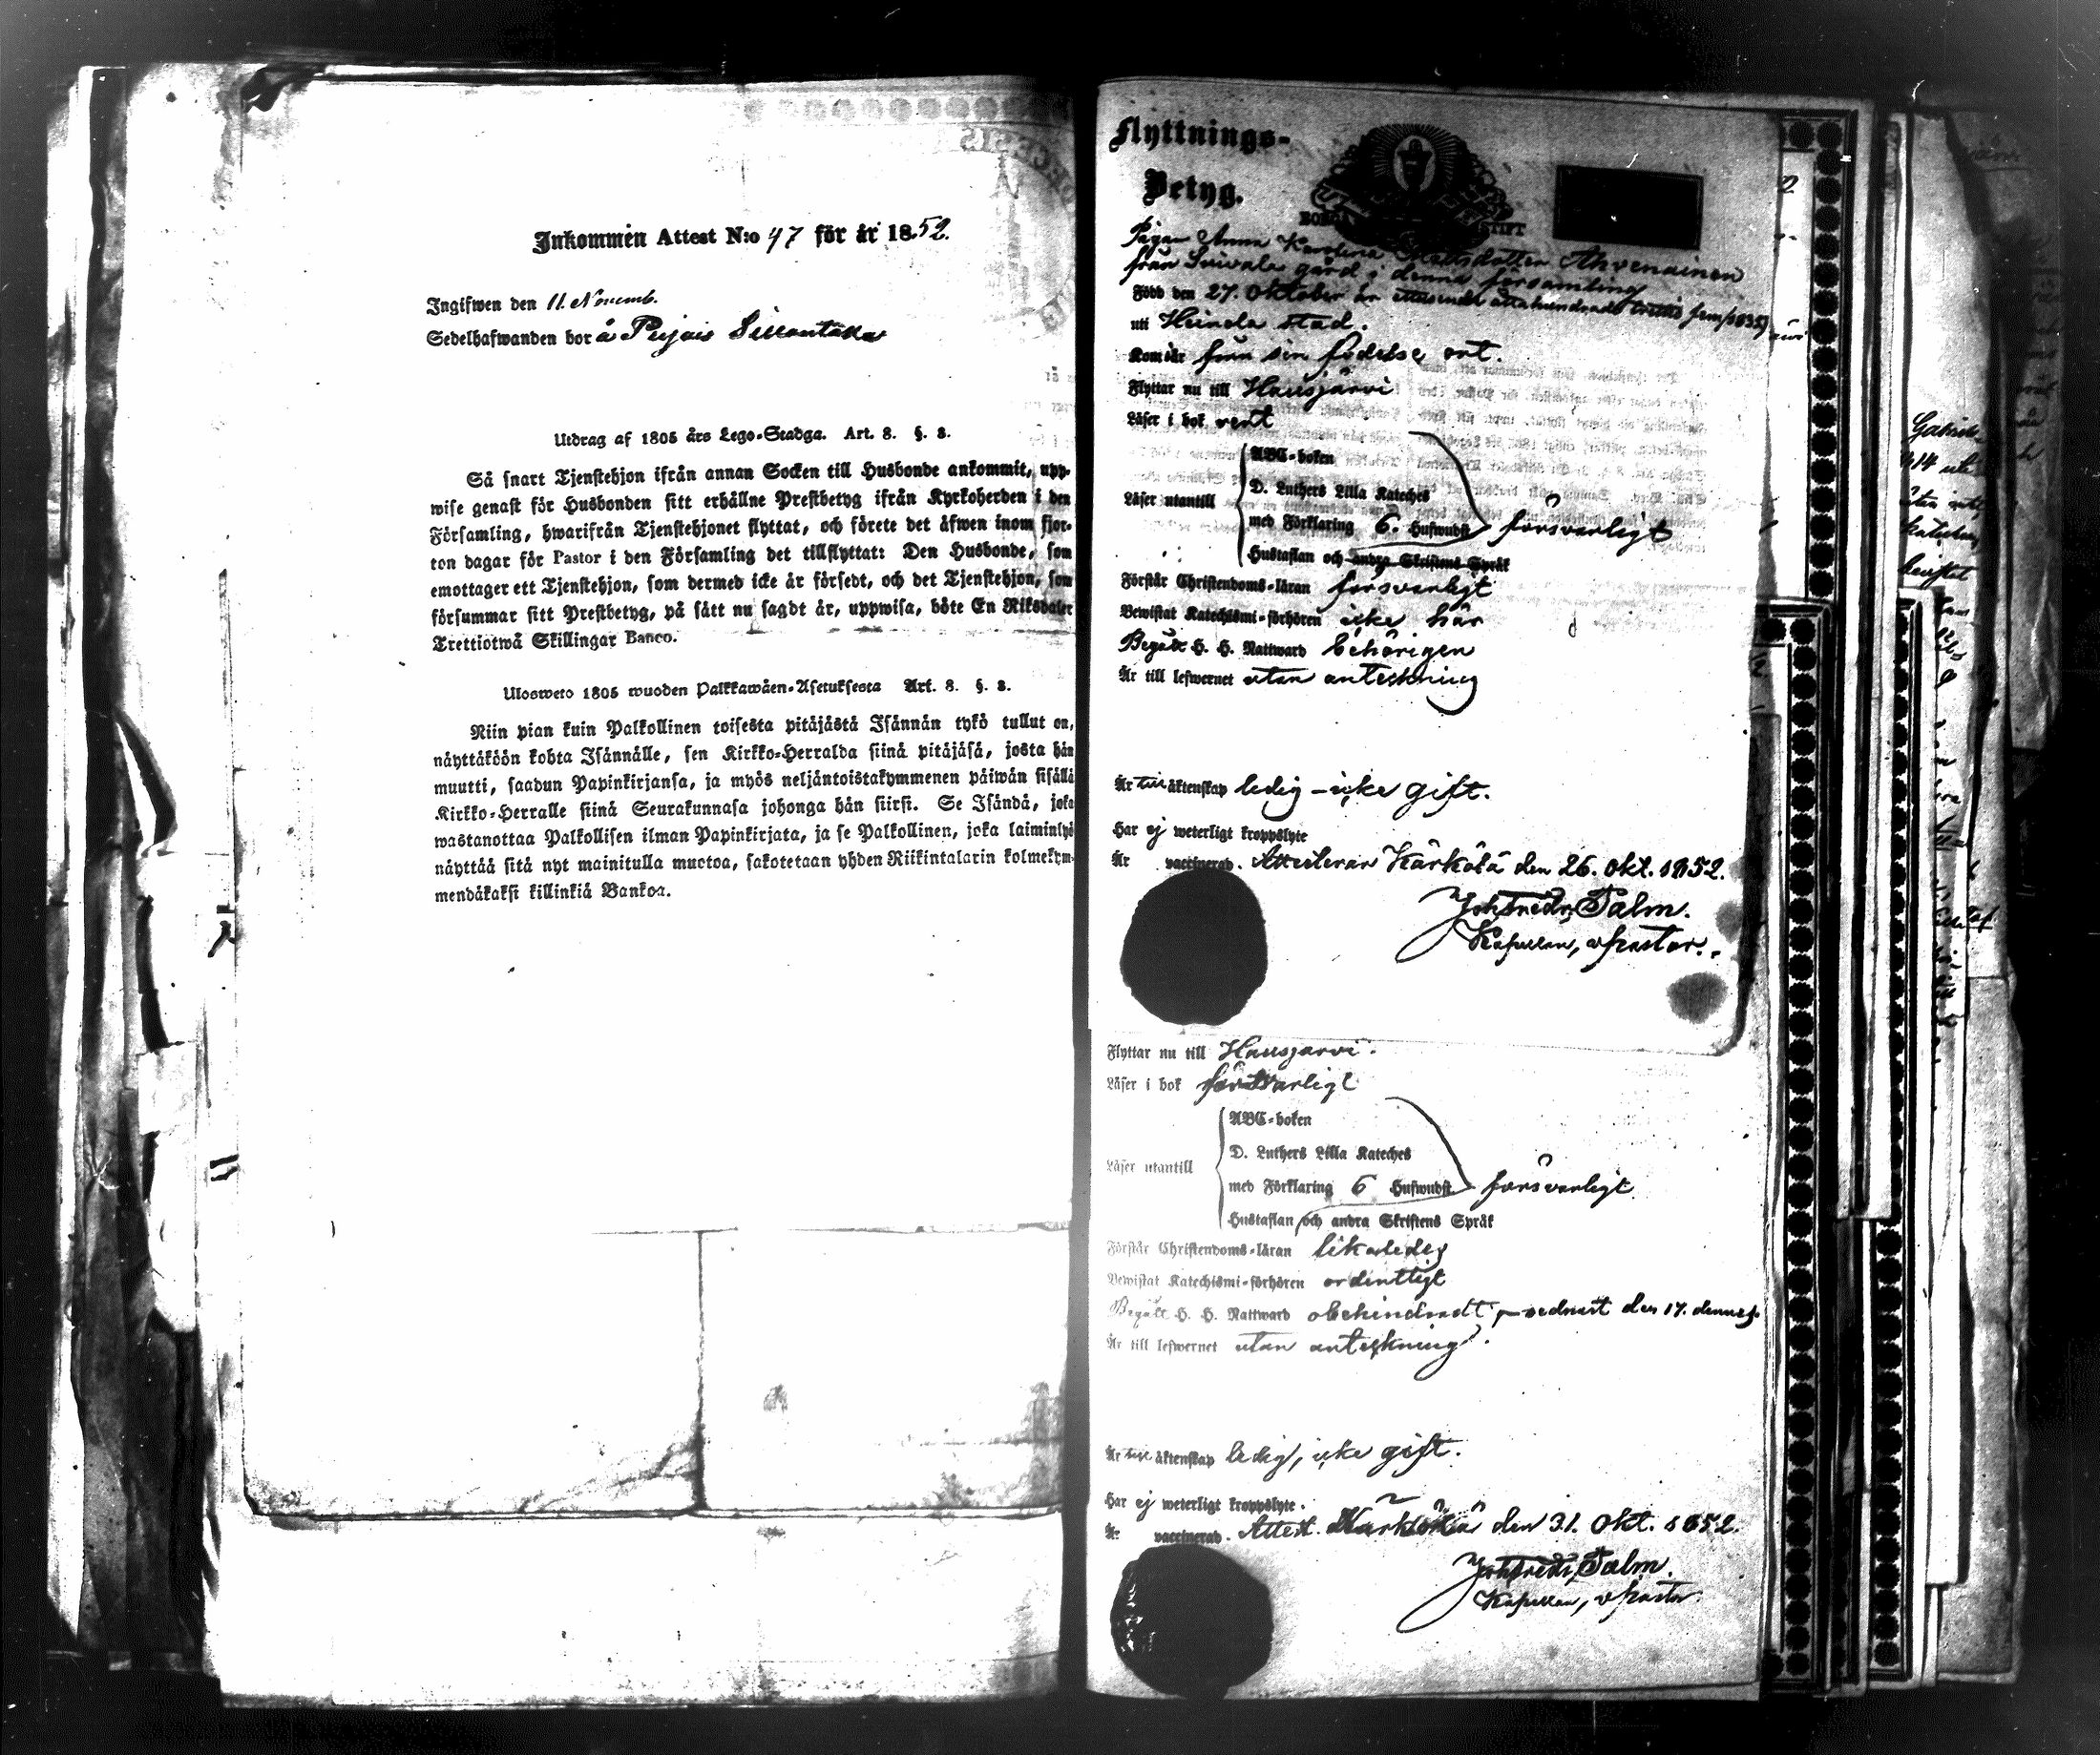 Inkommen Attest N:o 47 för år 1852.
Ingifwen den 11. Novemb.
Sedelhafwanden bor å
Utdrag af 1805 års Lego-Stadga. Art. 8. §. 8.
Så snart Tjenstehjon ifrån annan Socken till Husbonde ankommit, upp-
wise genast för Husbonden sitt erhållne Prestbetyg ifrån Kyrkoherden i den
Församling, hwarifrån Tjenstehjonet flyttat, och förete det äfwen inom fjor-
ton dagar för Pastor i den Församling det tillflyttat: Den Husbonde, som
emottager ett Tjenstehjon, som dermed icke är försedt, och det Tjenstehjon, som
försummar sitt Prestbetyg, på sätt nu sagdt är, uppwisa, böte En Riksdaler
Trettiotwå Skillingar Banco.
Ulosweto 1805 wuoden Palkkawäen-Asetuksesta Art. 8. §. 8.
Niin pian kuin Palkollinen toisesta pitäjästä Isännän tykö tullut on,
näyttäköön kohta Isännälle, sen Kirkko-Herralda siinä pitäjäsä, josta hän
muutti, saadun Papinkirjansa, ja myös neljäntoistakymmenen päiwän sisällä
Kirkko-Herralle siinä Seurakunnasa johonga hän siirsi. Se Isändä, joka
wastanottaa Palkollisen ilman Papinkirjata, ja se Palkollinen, joka laiminlyö
näyttää sitä nyt mainitulla muotoa, sakotetaan yhden Riikintalarin kolmekym-
mendäkaksi killinkiä Bankoa.
Flyttnings-
Betyg.
BORGÅ STIFT
Pigan Anna Karolina Mattsdotter Ahvenainen
från gård i denna församling
Född den 27. Oktober år ettusende åttahundrade fem (1835)
uti Heinola stad.
Kom är från sin födelse ort.
Flyttar nu till Hausjärvi
Läser i bok rent
ABC-boken
D. Luthers Lilla Kateches
Läser utantill med Förklaring 6. Hufwudst. försvarligt
Hustaflan och andra Skriftens Språk
Förstår Christendoms-läran försvarligt
Bewistat Katechismi-förhören icke här
Begått H. H. Nattward behörigen
Är till lefwernet utan anteckning
Är till äktenskap ledig - icke gift.
Har ej weterligt kroppslyte
Är vaccinerad. Attesterar Kärkölä den 26. Okt. 1852.
Palm.
Kapellan, v Pastor.
Flyttar nu till Hausjärvi.
Läser i bok försvarligt
ABC-boken
D. Luthers Lilla Kateches
Läser utantill med Förklaring 6 Hufwudst. försvarligt
Hustaflan och andra Skriftens Språk
Förstår Christendoms-läran likaledes
Bewistat Katechismi-förhören ordentligt
Begått H. H. Nattward obehindradt, sednast den 17. dennes.
Är till lefwernet utan anteckning.
Är till äktenskap ledig, icke gift.
Har ej weterligt kroppslyte.
Är vaccinerad. Attest. Kärkölä den 31. Okt. 1852.
Palm.
Kapellan, v Pastor.